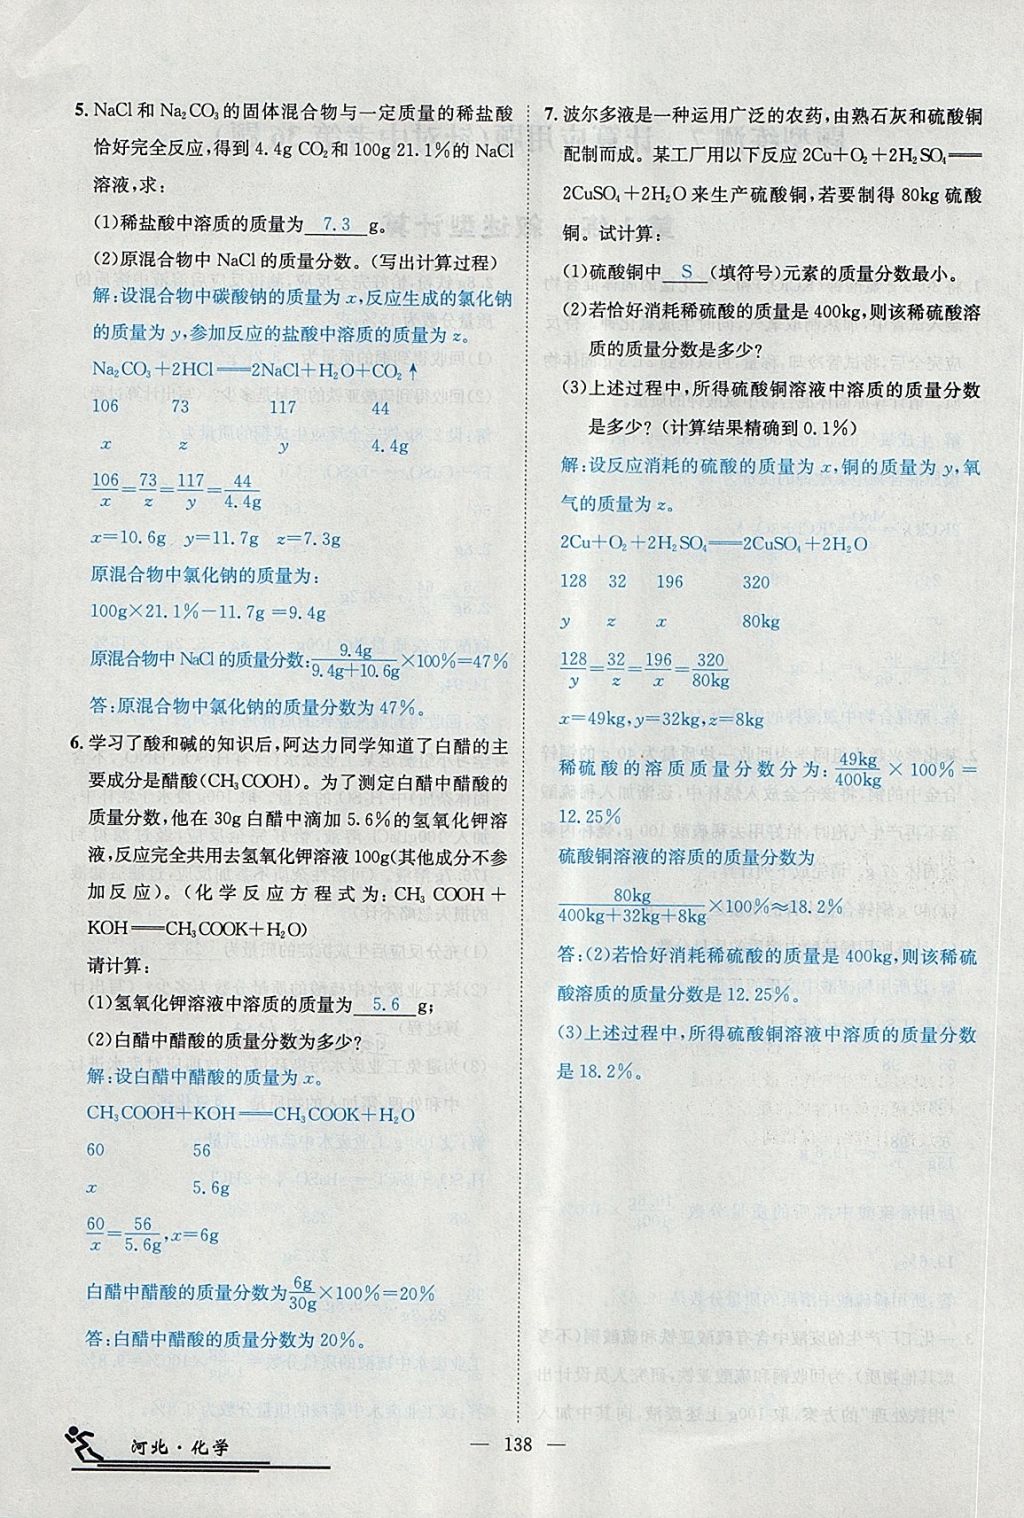 5. NaCl和Na₂CO₃的固体混合物与一定质量的稀盐酸
恰好完全反应,得到4.4g CO₂和100g 21.1%的NaCl
溶液,求:
(1)稀盐酸中溶质的质量为 7.3 g。
(2)原混合物中NaCl的质量分数。(写出计算过程)
解:设混合物中碳酸钠的质量为x,反应生成的氯化钠
的质量为y,参加反应的盐酸中溶质的质量为z。
Na₂CO₃+2HCl══2NaCl+H₂O+CO₂↑
106 73 117 44
x z y 4.4g
106/x=73/z=117/y=44/4.4g
x=10.6g y=11.7g z=7.3g
原混合物中氯化钠的质量为:
100g×21.1%-11.7g=9.4g
原混合物中NaCl的质量分数:9.4g/(9.4g+10.6g)×100%=47%
答:原混合物中氯化钠的质量分数为47%。
6. 学习了酸和碱的知识后,阿达力同学知道了白醋的主
要成分是醋酸(CH₃COOH)。为了测定白醋中醋酸的
质量分数,他在30g白醋中滴加5.6%的氢氧化钾溶
液,反应完全共用去氢氧化钾溶液100g(其他成分不参
加反应)。(化学反应方程式为:CH₃COOH+
KOH══CH₃COOK+H₂O)
请计算:
(1)氢氧化钾溶液中溶质的质量为 5.6 g;
(2)白醋中醋酸的质量分数为多少?
解:设白醋中醋酸的质量为x。
CH₃COOH+KOH══CH₃COOK+H₂O
60 56
x 5.6g
60/x=56/5.6g,x=6g
白醋中醋酸的质量分数为6g/30g×100%=20%
答:白醋中醋酸的质量分数为20%。
7. 波尔多液是一种运用广泛的农药,由熟石灰和硫酸铜
配制而成。某工厂用以下反应2Cu+O₂+2H₂SO₄══
2CuSO₄+2H₂O来生产硫酸铜,若要制得80kg硫酸
铜。试计算:
(1)硫酸铜中 S (填符号)元素的质量分数最小。
(2)若恰好消耗稀硫酸的质量是400kg,则该稀硫酸溶
质的质量分数是多少?
(3)上述过程中,所得硫酸铜溶液中溶质的质量分数
是多少?(计算结果精确到0.1%)
解:设反应消耗的硫酸的质量为x,铜的质量为y,氧
气的质量为z。
2Cu+O₂+2H₂SO₄══2CuSO₄+2H₂O
128 32 196 320
y z x 80kg
128/y=32/z=196/x=320/80kg
x=49kg,y=32kg,z=8kg
稀硫酸的溶质质质量分数分为:49kg/400kg×100%=
12.25%
硫酸铜溶液的溶质的质量分数为
80kg/(400kg+32kg+8kg)×100%≈18.2%
答:(2)若恰好消耗稀硫酸的质量是400kg,则该稀硫
酸溶质的质量分数是12.25%。
(3)上述过程中,所得硫酸铜溶液中溶质的质量分数
是18.2%。
河北·化学
— 138 —